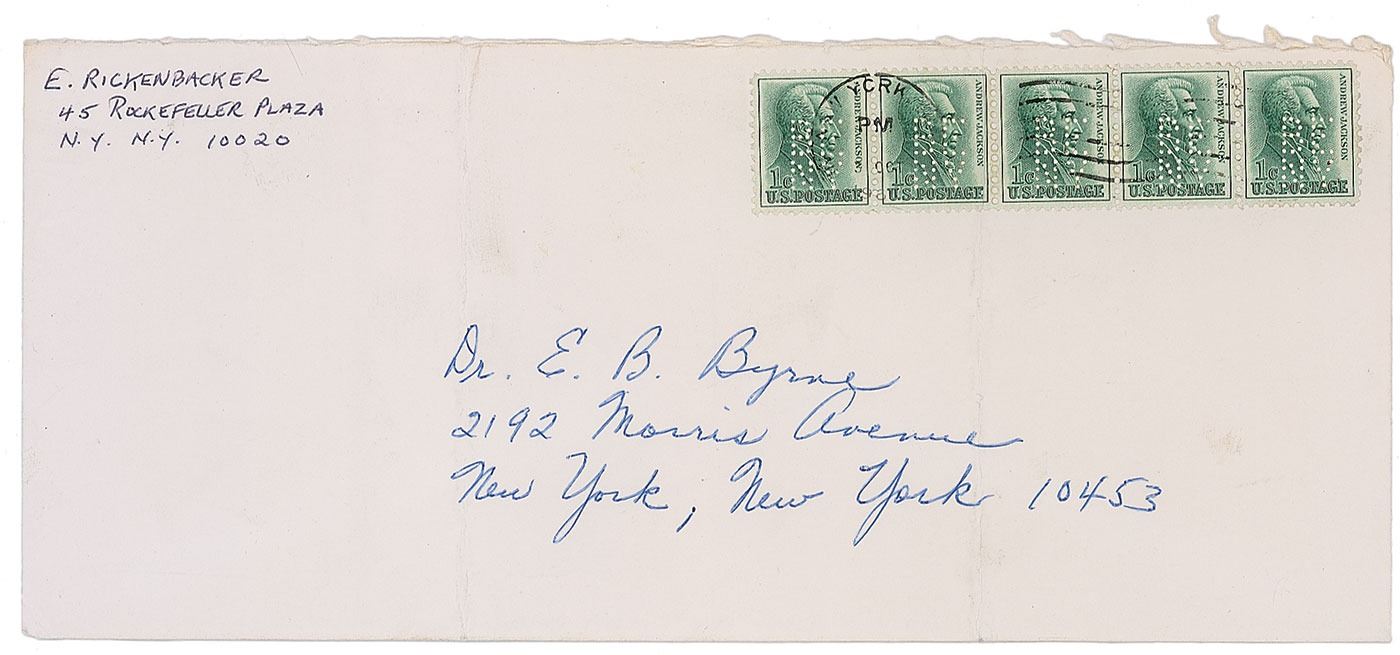 E. RICKENBACKER
45 ROCKEFELLER PLAZA
N.Y. N.Y. 10020
YORK
PM
OC
ANDREW JACKSON
1c
U.S. POSTAGE
ANDREW JACKSON
1c
U.S. POSTAGE
ANDREW JACKSON
1c
U.S. POSTAGE
ANDREW JACKSON
1c
U.S. POSTAGE
ANDREW JACKSON
1c
U.S. POSTAGE
Dr. E. B. Byrne
2192 Morris Avenue
New York, New York 10453